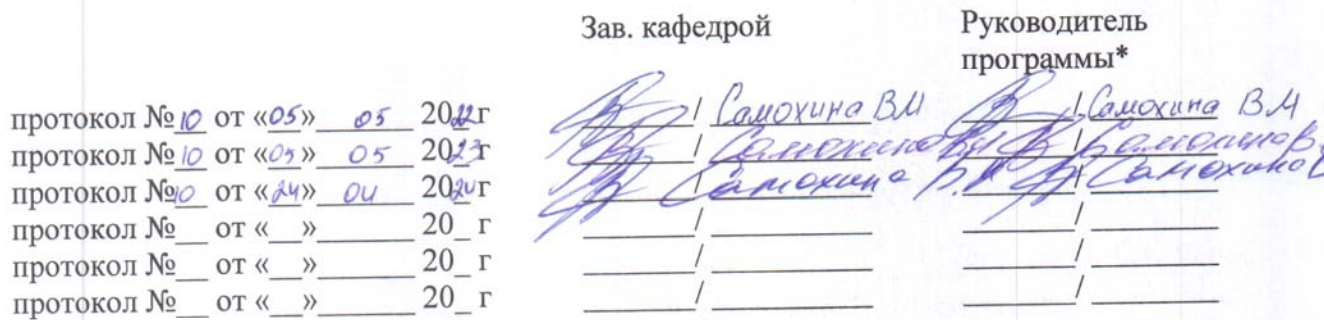 Зав. кафедрой Руководитель
программы*
протокол №10 от «05» 05 2022г / Самохина ВМ / Самохина ВМ
протокол №10 от «05» 05 2023г / Самохина В / Самохина В.
протокол №10 от «24» 04 2024г / Самохина В. / Самохина
протокол №__ от «__»_______ 20_ г ______/__________ ______/__________
протокол №__ от «__»_______ 20_ г ______/__________ ______/__________
протокол №__ от «__»_______ 20_ г ______/__________ ______/__________